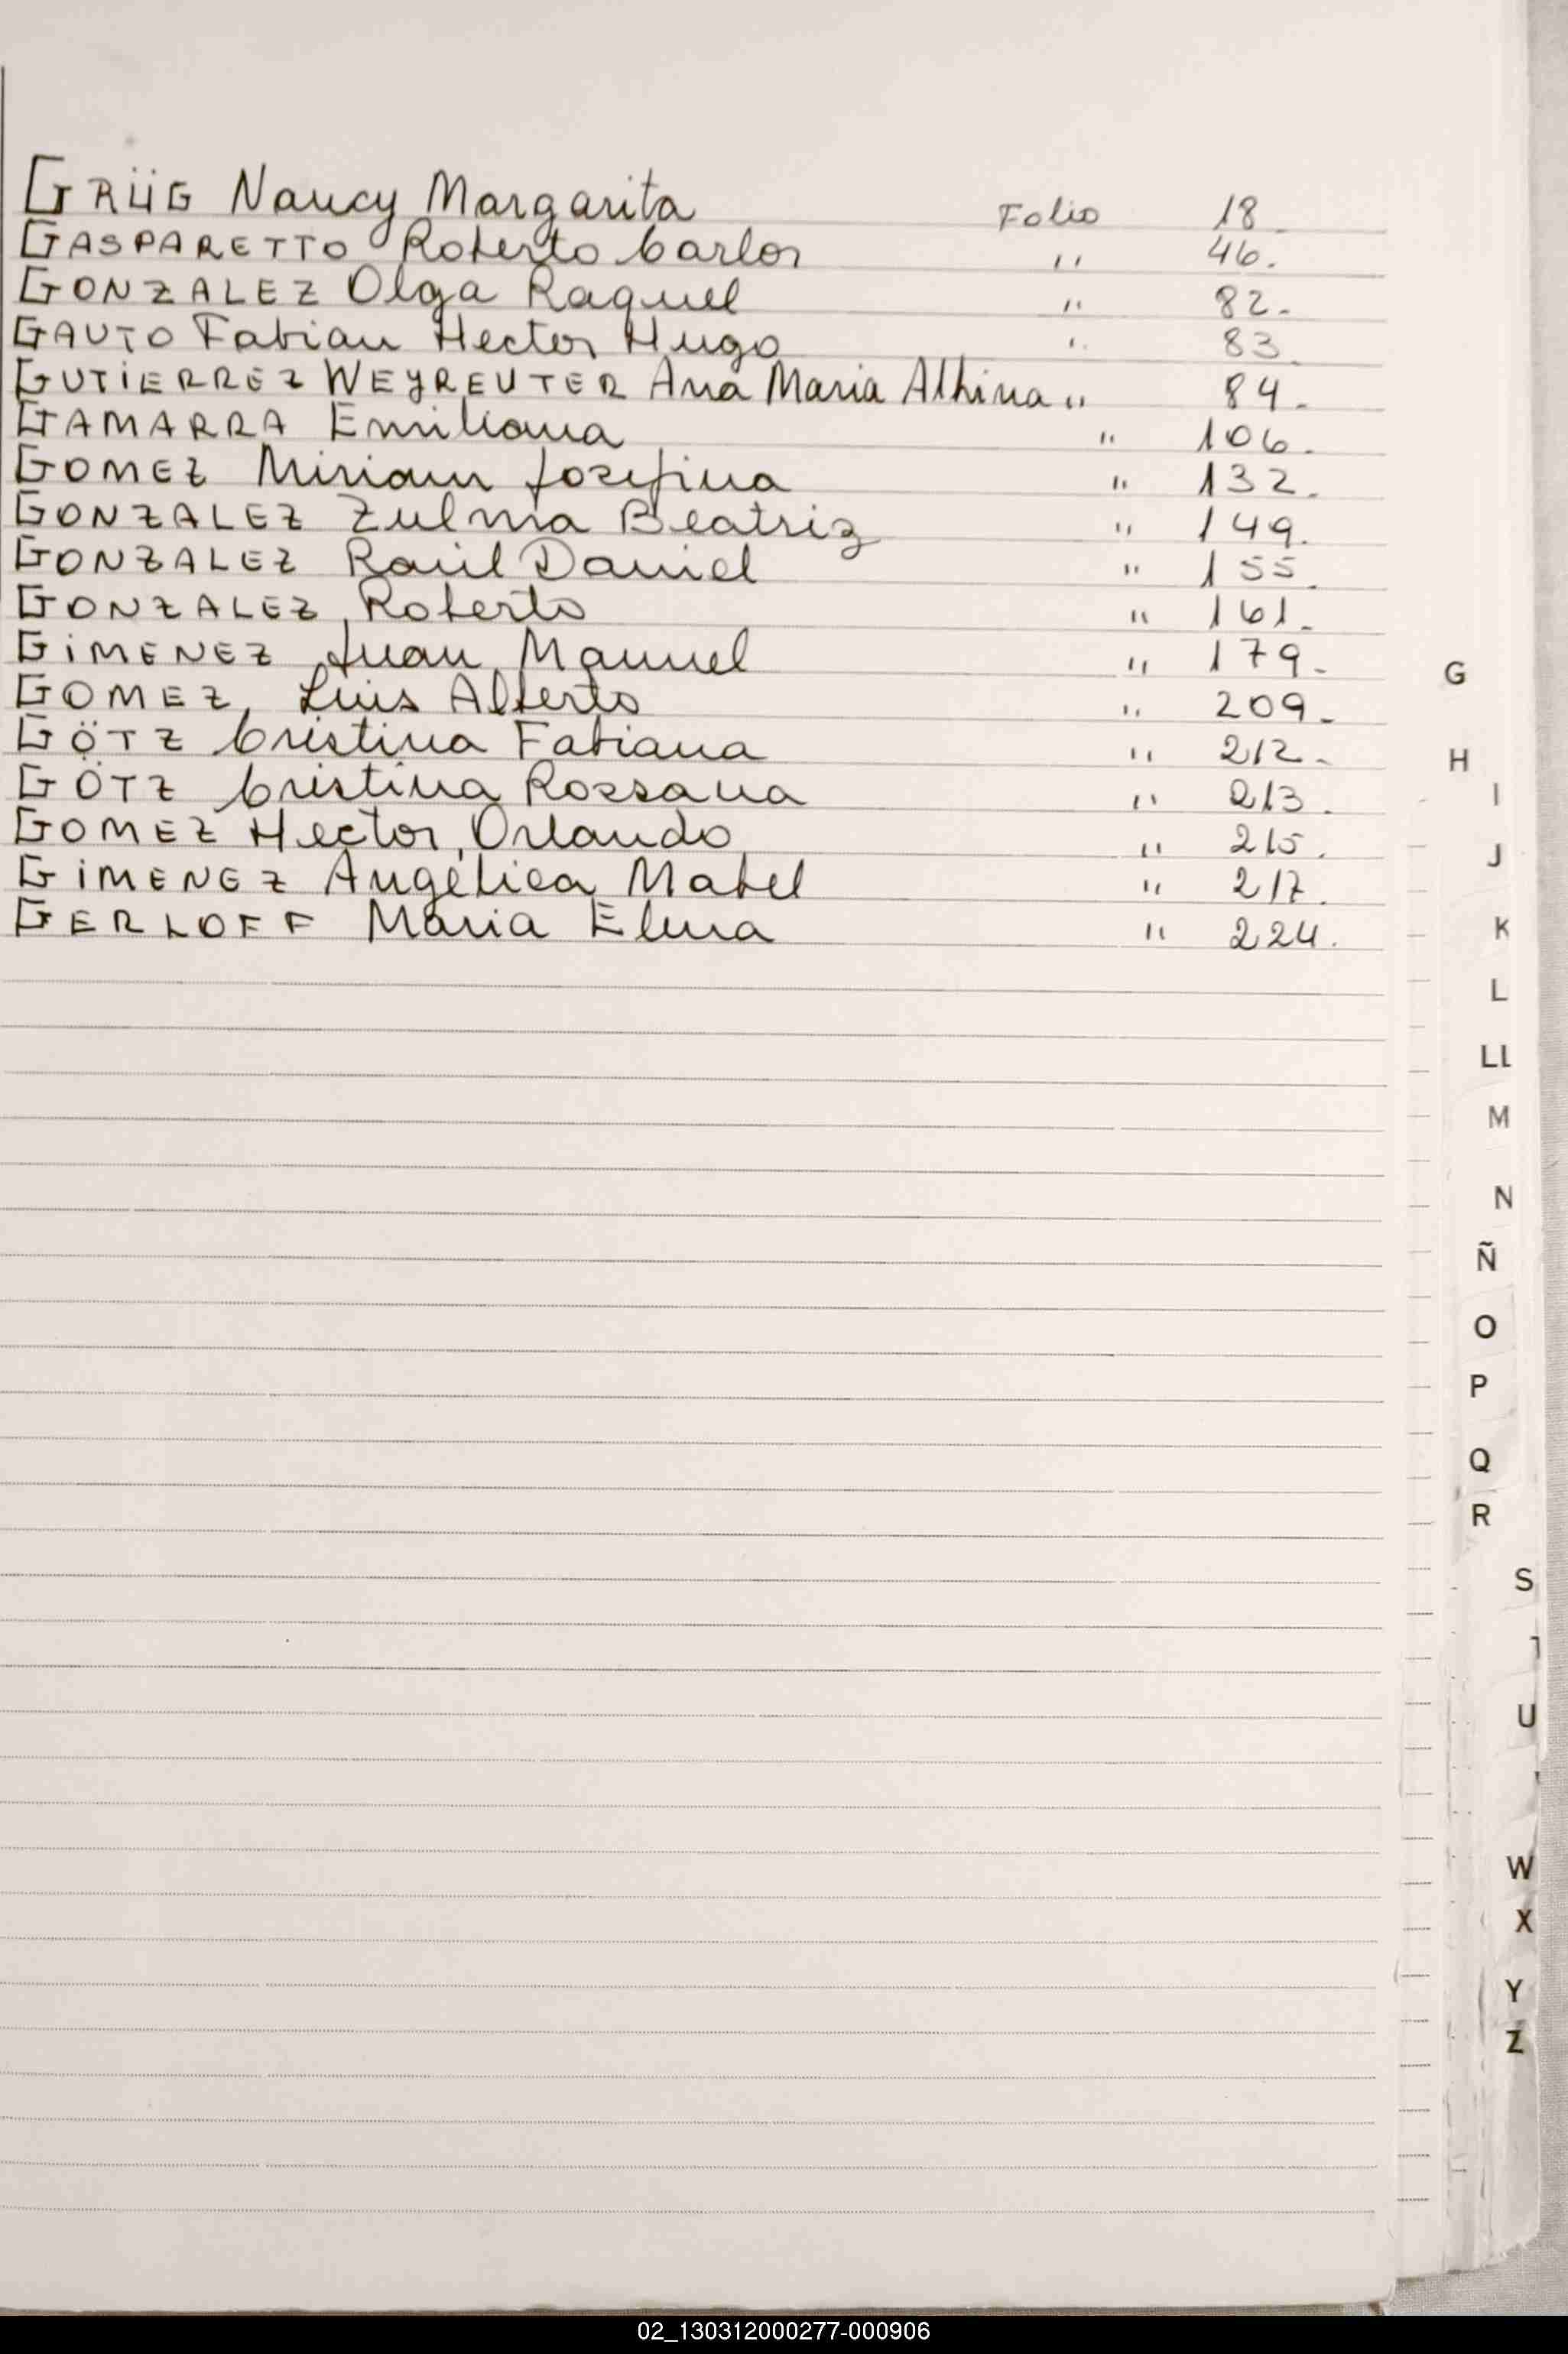 GRÜG Nancy Margarita Folio 18.
GASPARETTO Roberto Carlos " 46.
GONZALEZ Olga Raquel " 82.
GAUTO Fabian Hector Hugo " 83.
GUTiERREZ WEYREUTER Ana Maria Albina " 84.
GAMARRA Emiliana " 106.
GOMEZ Miriam Josefina " 132.
GONZALEZ Zulma Beatriz " 149.
GONZALEZ Raúl Daniel " 155.
GONZALEZ, Roberto " 161.
GiMENEZ Juan Manuel " 179.
GOMEZ, Luis Alberto " 209.
GÖTZ Cristina Fabiana " 212.
GÖTZ Cristina Rossana " 213.
GOMEZ Hector Orlando " 215.
GiMENEZ Angélica Mabel " 217.
GERLOFF Maria Elena " 224.
G
H
I
J
K
L
LL
M
N
Ñ
O
P
Q
R
S
U
W
X
Y
Z
02_130312000277-000906